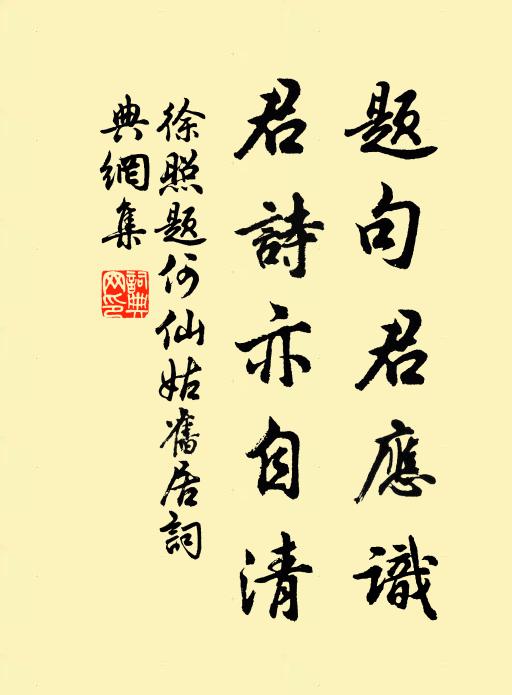 题句君應識
君詩亦自清
徐照题何仙姑舊居詞
典網集
詞典
网印